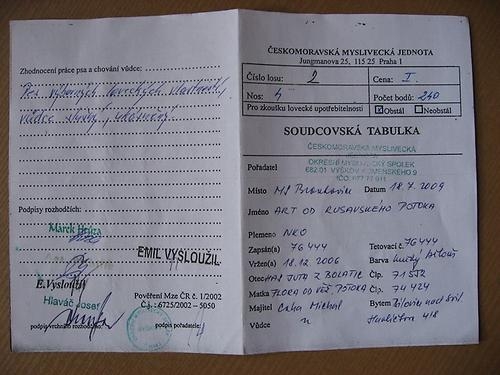 Zhodnocení práce psa a chování vůdce:
Pes výborných loveckých vlastností,
vůdce
Podpisy rozhodčích:
Marek Briga
E.Vysloužil
Hlaváč Josef
podpis vrchního rozhodčího
EMIL VYSLOUŽIL
Pověření Mze ČR č. 1/2002
Č.j. : 6725/2002 - 5050
podpis pořadatele
ČESKOMORAVSKÁ MYSLIVECKÁ JEDNOTA
Jungmanova 25, 115 25 Praha 1
Číslo losu: 2 Cena: I.
Nos: 4 Počet bodů: 240
Pro zkoušku lovecké upotřebitelnosti Obstál Neobstál
SOUDCOVSKÁ TABULKA
ČESKOMORAVSKÁ MYSLIVECKÁ
Pořadatel OKRESNÍ MYSLIVECKÝ SPOLEK
682 01 VYŠKOV, KOMENSKÉHO 9
Místo Datum 18.7.2009
Jméno ART OD RUSAVSKÉHO POTOKA
Plemeno NKO
Zapsán(a) 76444 Tetovací č. 76444
Vržen(a) 18.12 2006 Barva hnědý bělouš
Otec HAS JUTA Z BOLATIC Člp. 71532
Matka FLORA OD VĚŽ. POTOKA Člp. 74425
Majitel Caha Michal Bytem
Vůdce 418